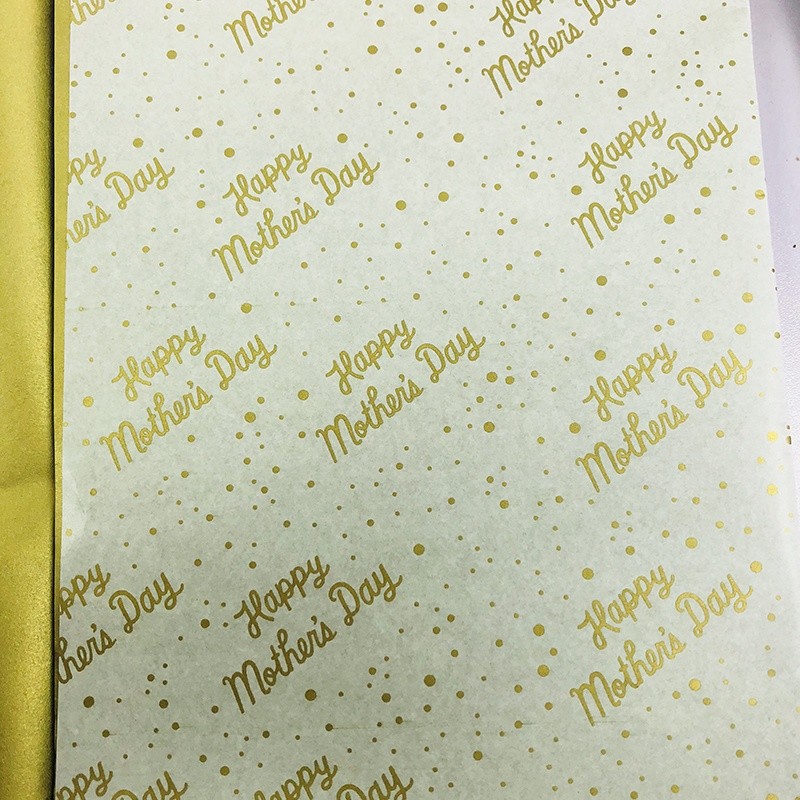 ther's
Mother's Day
Happy
Mother's Day
ppy
her's Day
Happy
Mother's Day
Happy
Mother's Day
Happy
Mother's Day
Happy
Mother's Day
Happy
Mother's Day
ppy
ther's Day
Happy
Mother's Day
Happy
Mother's Day
ppy
Day
Happy
Day